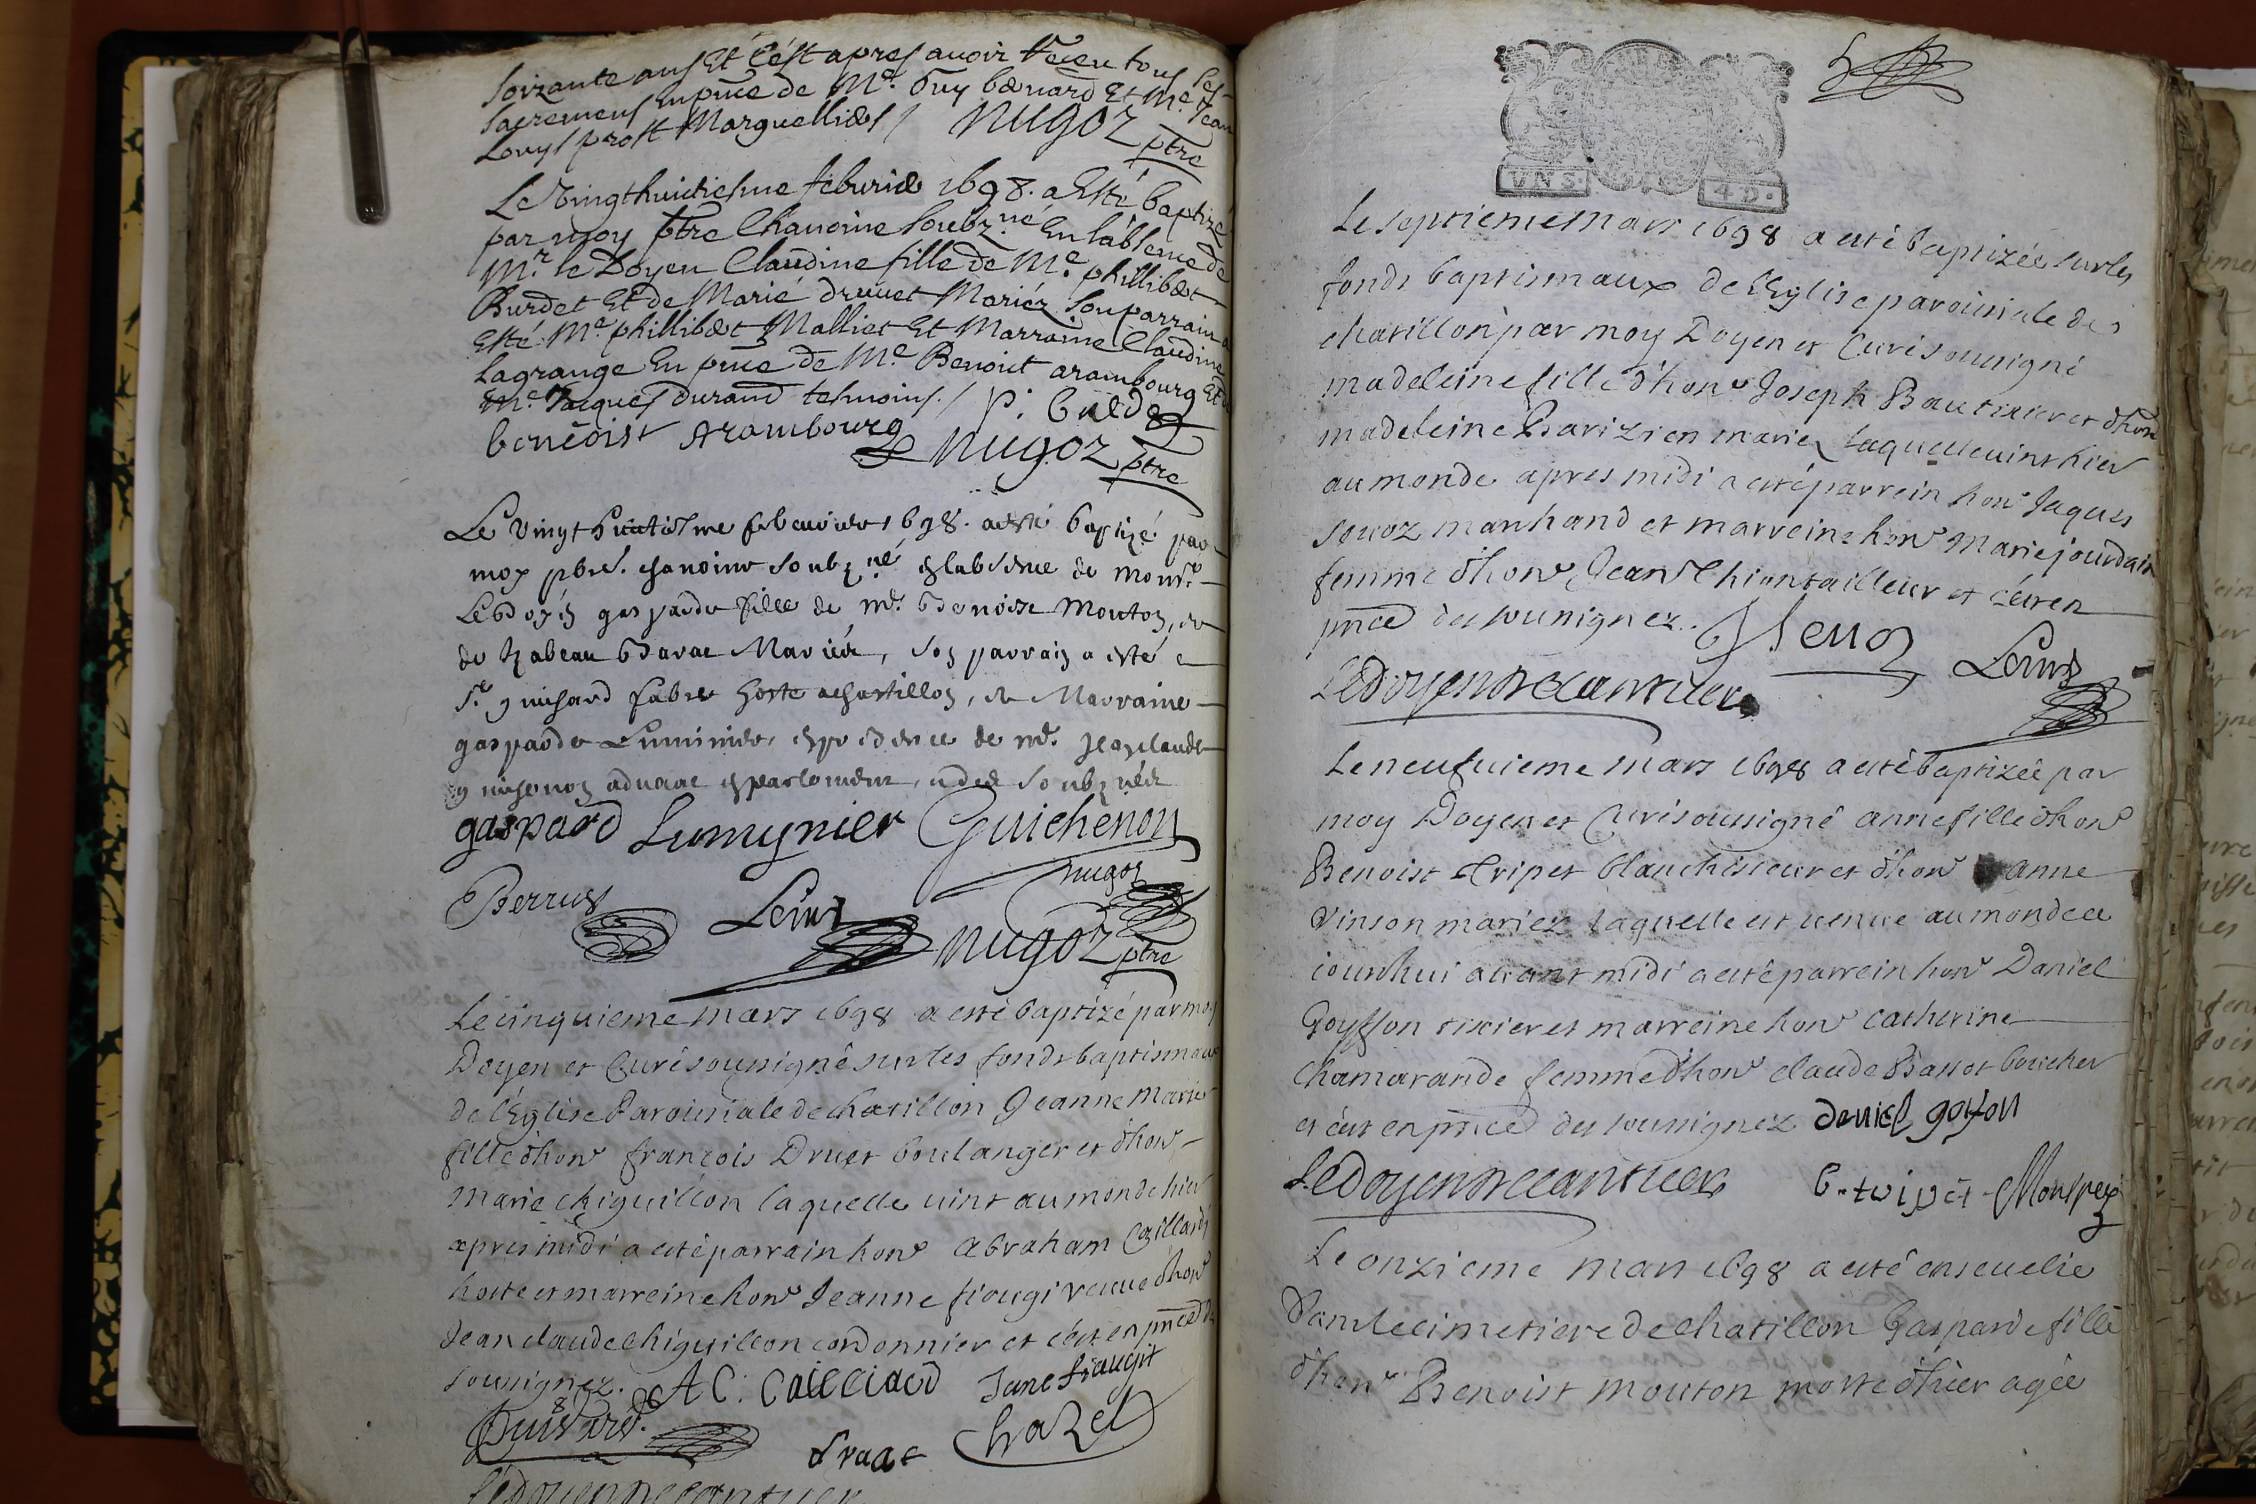 soixante ans Et C'est apres avoir Receu tous les
sacremens En pnce de Me. Guy bernard Et Me. Jean
Louys prost Marguelliers / NUGOZ ptre
Le Vingthuictiesme februier 1698. a Esté baptizé
par moy ptre Chanoine soubz.né En l'absence de
Mr. le Doyen Claudine fille de Me. phillibert
Burdet Et de Marie druuet Mariez son parrain a
Esté Me. phillibert Malliet Et Marraine Claudine
Lagrange En pnce de Me. Benoict arambourg Et
Me. Jacques durand tesmoins. / P. burdet
benoist Arambourg NUGOZ ptre
Le vingt huictiesme febvrier 1698. a esté baptizé par
moy pbre. chanoine soubz.né en labsence de monsr.
Le doyen gasparde fille de me. Benoist Mouton, et
de Izabeau Barat Mariéz, son parrain a esté
Sr. guichard fabre hoste a chastillon, et Marraine
gasparde Luminier, en presence de me. Jean claude
guichenon advocat en parlement, et des soubznéz
gaspard Lumynier Guichenon
nugoz
Perrus Leius NUGOZ ptre
Le cinquieme mars 1698 a esté baptizé par moy
Doyen et Curé sousigné sur les fonds baptismaux
de l'Eglise Paroissiale de chatillon Jeanne Marie
fille d'hon. françois Druet boulanger et d'hon.
marie chiguillon laquelle vint au monde hier
apres midi a esté parrain hon. abraham Caillard
hoste et marreine hon. Jeanne fiougi veuve d'hon.
Jean claude chiguillon cordonnier et c'est en pnce des
sousignez. AC. Cailliard Jane fiaugit
druet Chazel
Le doyen Decantuer
VNS. 4 D.
Le septieme mars 1698 a esté baptizée sur les
fonds baptismaux de l'Eglise paroissiale de
chatillon par moy Doyen et Curé sousigné
madeleine fille d'hon. Joseph Bautixier et d'hon.
madeleine Parizien mariez laquelle vint hier
au monde apres midi a esté parrein hon. Jaques
Souoz marchand et marreine hon. Marie jourdain
femme d'hon. Jean Chion tailleur et c'est en
pnce des sousignez. Leius
Le doyen Decantuer
Le neufvieme mars 1698 a esté baptizée par
moy Doyen et Curé sousigné anne fille d'hon.
Benoist Tripet blanchisseur et d'hon. anne
Vinson mariez laquelle est venue au monde ce
iourdhui avant midi a esté parrein hon. Daniel
Goyffon tixier et marreine hon. Catherine
Chamarande femme d'hon. claude Bassot boucher
et c'est en pnce des sousignez deniel goyfon
Le doyen Decantuer b. tripet Montpey
Le onzieme mars 1698 a esté ensevelie
Dans le cimetiere de chatillon Gasparde fille
d'hon. Benoist mouton morte d'hier agée